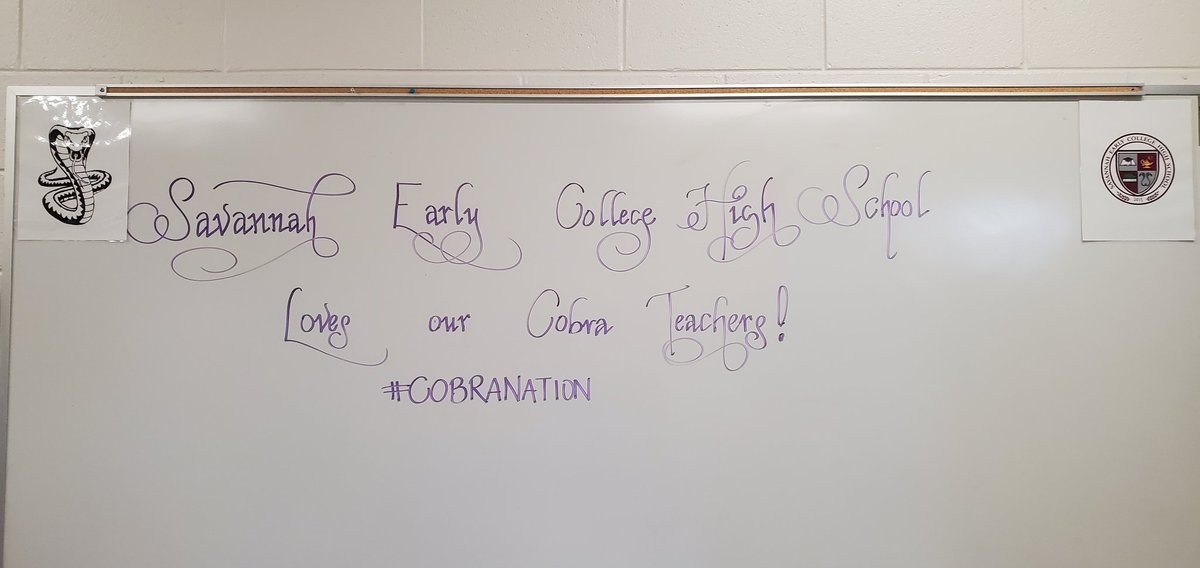 Savannah Early College High School
Loves our Cobra Teachers!
#COBRANATION
SAVANNAH EARLY COLLEGE HIGH SCHOOL